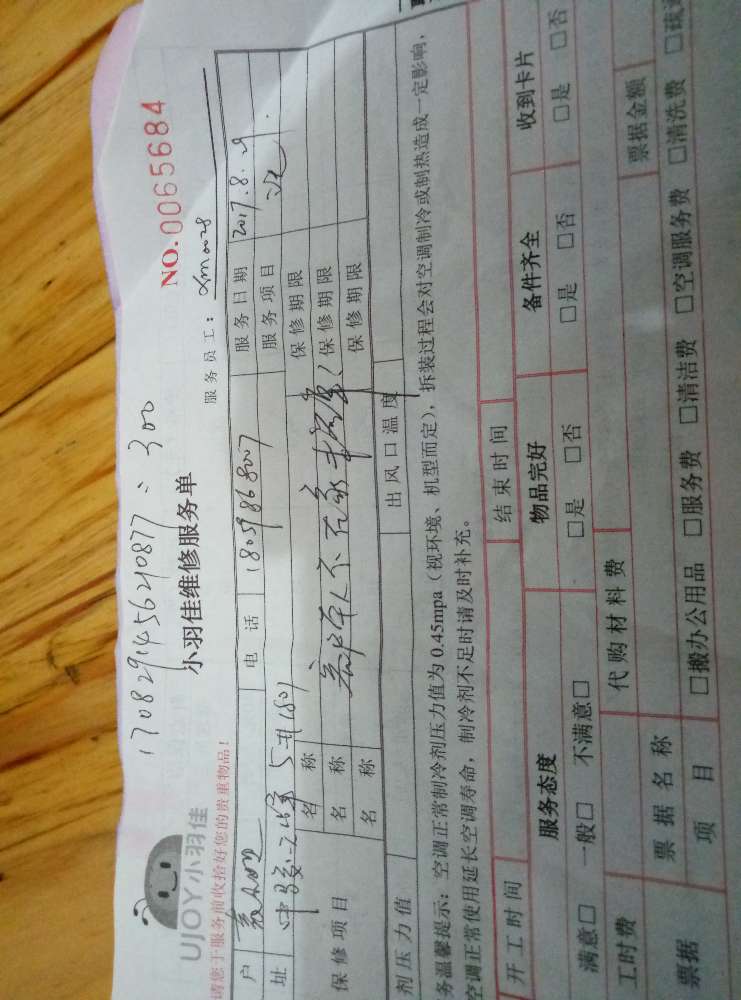 1708291456210877：300
UJOY小羽佳
小羽佳维修服务单
NO.0065684
请您于服务前收拾好您的贵重物品！
服务员工：xm0028
户
电话 18059868007
服务日期 2017.8.29.
址
5#1801
服务项目
保修项目
名称
保修期限
名称
保修期限
名称
保修期限
剂压力值
出风口温度
务温馨提示：空调正常制冷剂压力值为0.45mpa（视环境、机型而定），拆装过程会对空调制冷或制热造成一定影响，
空调正常使用延长空调寿命，制冷剂不足时请及时补充。
开工时间
结束时间
服务态度
物品完好
备件齐全
收到卡片
满意□ 一般□ 不满意□
□是 □否
□是 □否
□是 □否
工时费
代购材料费
票据
票据名称
票据金额
项目
□搬办公用品 □服务费 □清洁费 □空调服务费 □清洗费